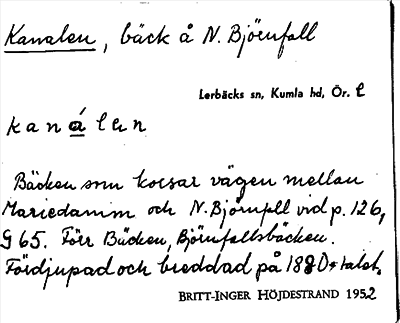 Kanalen, bäck å N. Björnfall
Lerbäcks sn, Kumla hd, Ör. l
kanálen
Bäcken som korsar vägen mellan
Mariedamm och N. Björnfll vid p. 126,
G 65. Förr Bäcken, Björnfallsbäcken.
Fördjupad och breddad på 1880-talet.
BRITT-INGER HÖJDESTRAND 1952